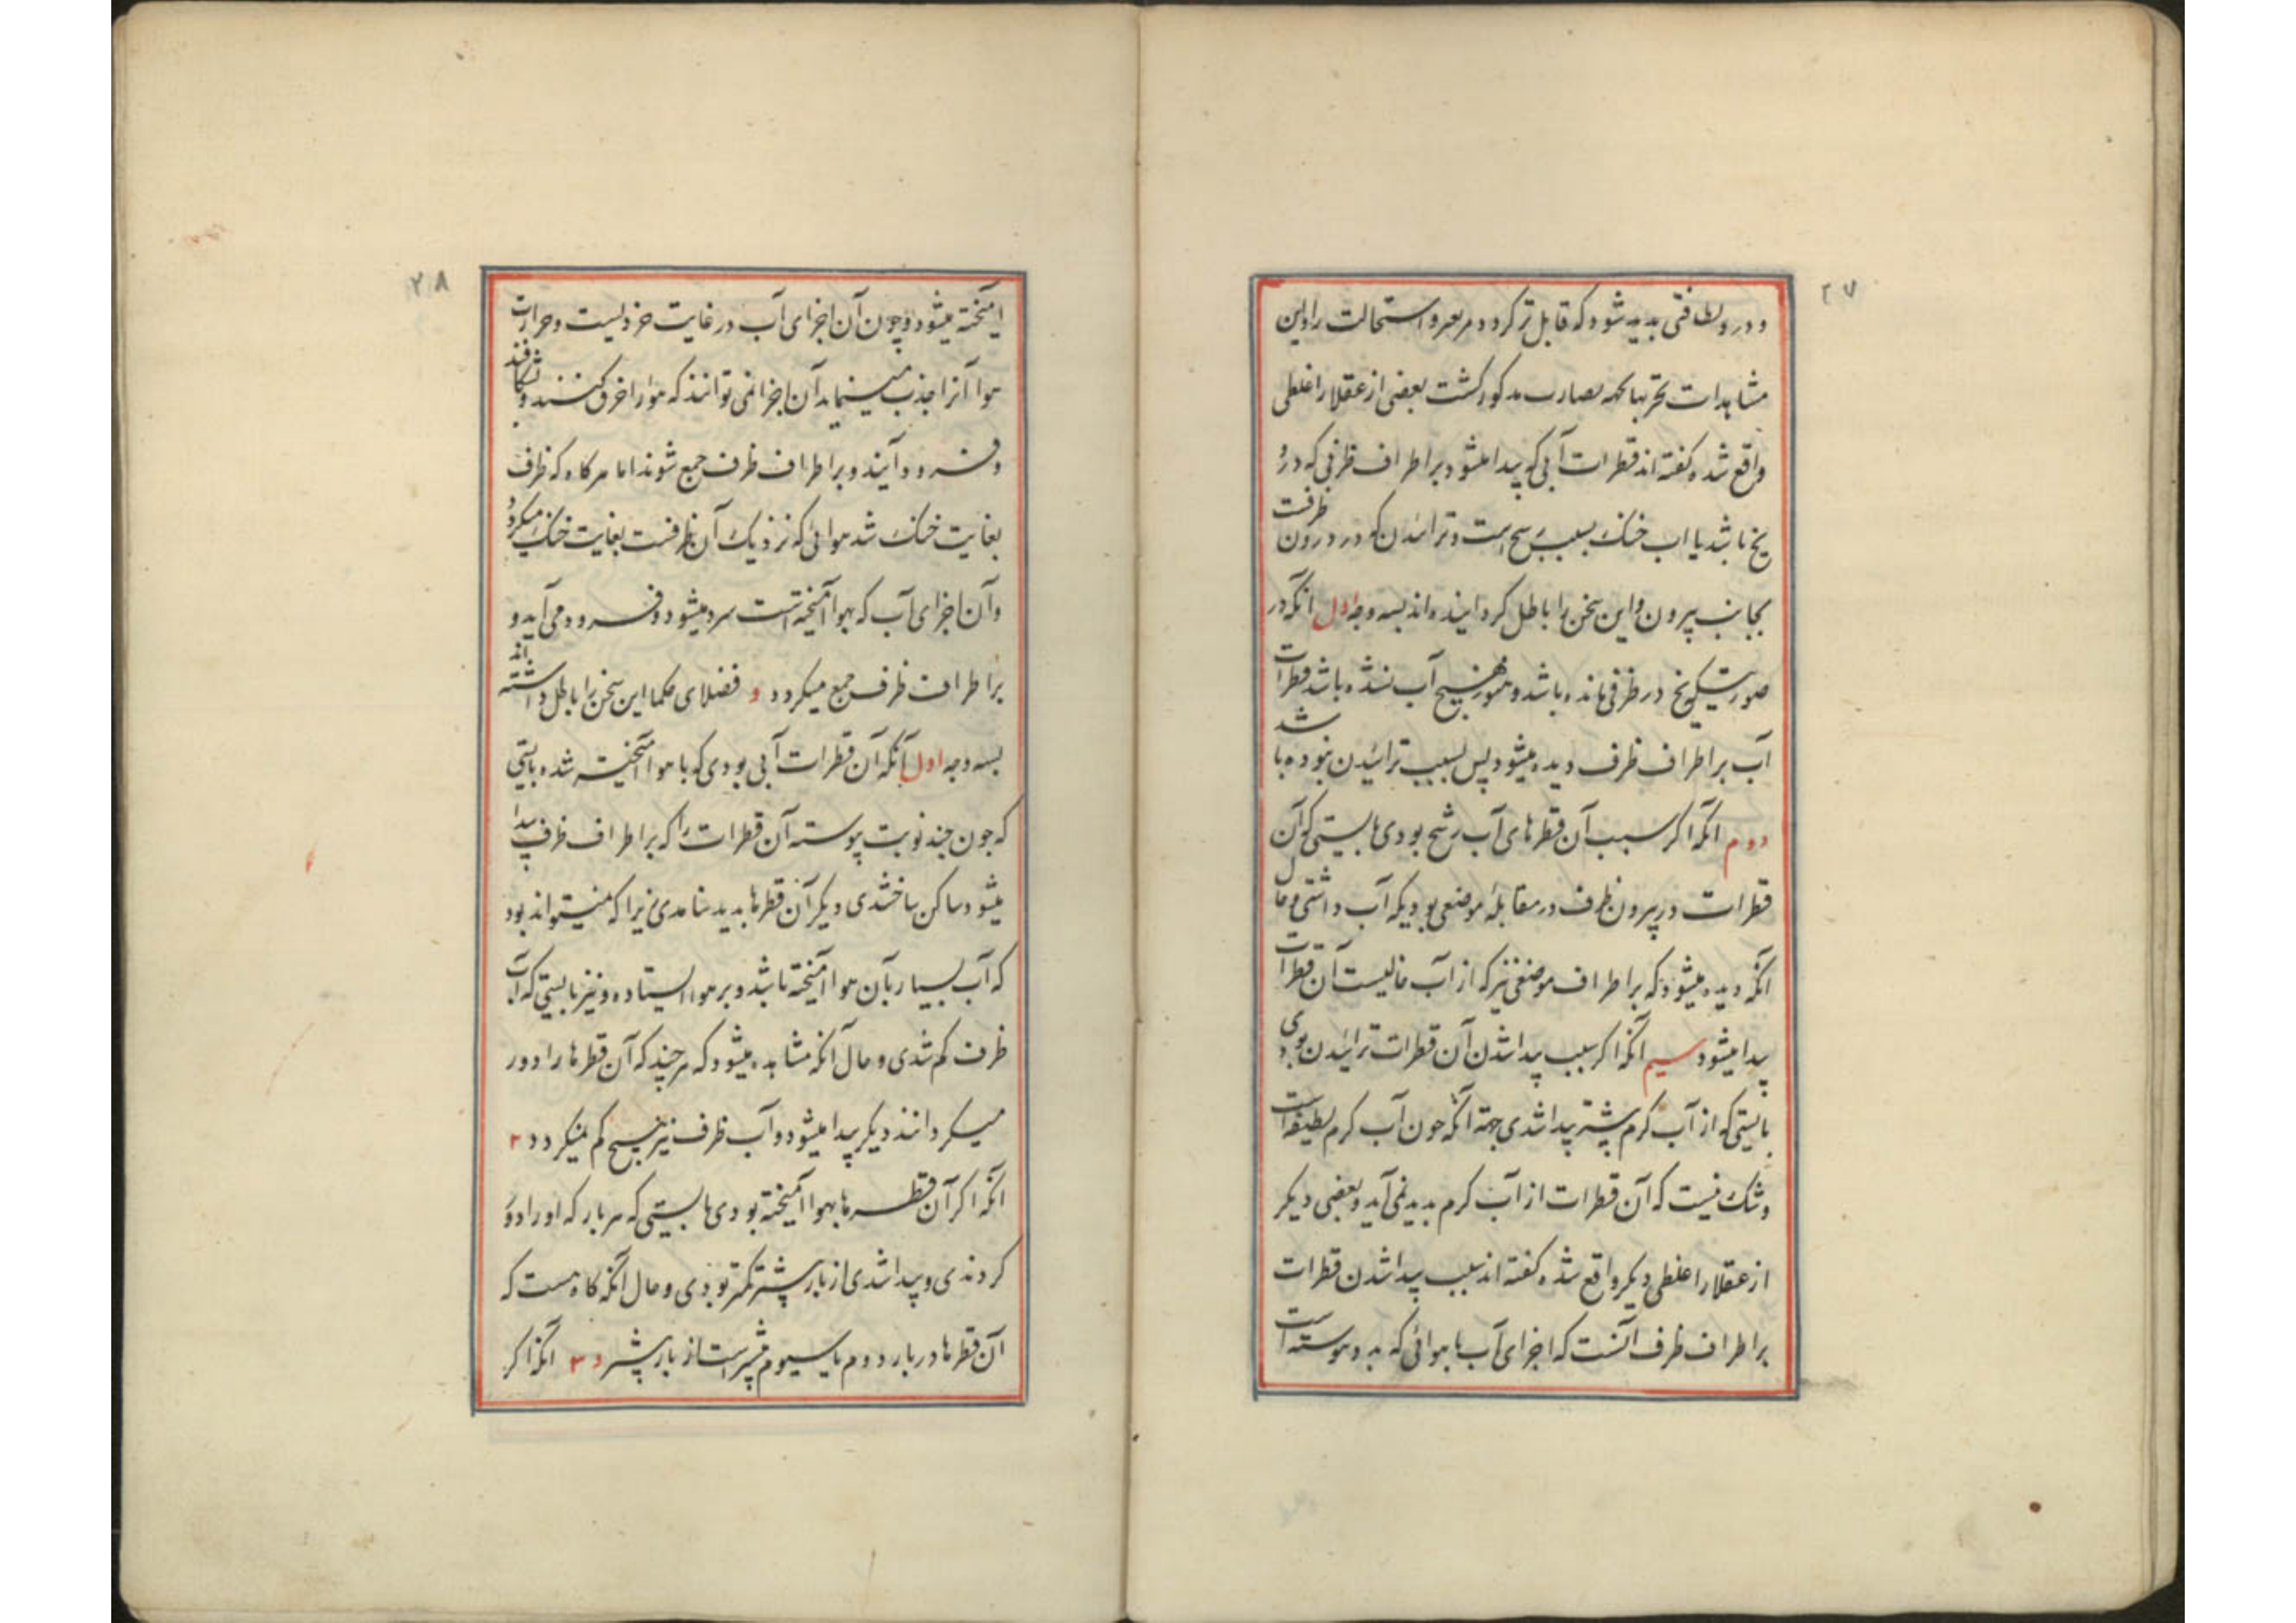 ۲۷
و در و لطافتی بدید شود که قابل تر کردد مر تغیر و استحالت را و این
مشاهدات تجربها که بصارت مذکور کشت بعضی از عقلا را غلطی
واقع شده کفته اند قطرات آبی که پیدا میشود بر اطراف ظرفی که درو
یخ باشد یا اب خنک بسبب رشح است و ترائیدن که در درون ظرفست
بجانب بیرون و این سخن را باطل کردانیده اند بسه وجه اول انکه در
صورتیکه یخ در ظرفی مانده باشد و هنوز هیچ آب نشده باشد قطرات
آب بر اطراف ظرف دیده میشود پس بسبب ترائیدن نبوده باشد
دوم انکه اکر سبب آن قطرهای آب رشح بودی بایستی که آن
قطرات در بیرون ظرف در مقابلهٔ موضعی بودیکه آب داشتی و حال
آنکه دیده میشود که بر اطراف موضعی نیز که از آب خالیست آن قطرات
پیدا میشود سیم انکه اکر سبب پیدا شدن آن قطرات ترائیدن بودی
بایستی که از آب کرم پیشتر پیدا شدی جهة آنکه چون آب کرم لطیفتر است
و شک نیست که آن قطرات از آب کرم بدید نمی آید و بعضی دیکر
از عقلا را غلطی دیکر واقع شده کفته اند سبب پیدا شدن قطرات
بر اطراف ظرف آنست که اجزای آب با هوائی که بدو پیوسته است
۲۸
امیخته میشود و چون آن اجزای آب در غایت خردیست و حرارت
هوا آنرا جذب مینماید آن اجزا نمی توانند که هوا را خرق کنند و بشکافند
و فرود آیند و بر اطراف ظرف جمع شوند اما هر کاه که ظرف
بغایت خنک شد هوائی که نزدیک آن ظرفست بغایت خنک میکردد
و آن اجزای آب که بهوا آمیخته است سرد میشود و فرود می آید و
بر اطراف ظرف جمع میکردد و فضلای حکما این سخن را باطل داشته اند
بسه وجه اول آنکه آن قطرات آبی بودی که با هوا آمیخته شده بایستی
که چون چند نوبت پیوسته آن قطرات را که بر اطراف ظرف پیدا
میشود ساکن ساختندی دیکر آن قطرها بدید نیامدی زیرا که نمیتواند بود
که آب بسیار بآن هوا آمیخته باشد و بر هوا ایستاده و نیز بایستی که آب
ظرف کم شدی و حال آنکه مشاهده میشود که هر چند که آن قطرها را دور
میکردانند دیکر پیدا میشود و آب ظرف نیز هیچ کم نمیکردد ۲
انکه اکر آن قطرها بهوا آمیخته بودی بایستی که هر بار که او را دور
کردندی و پیدا شدی از بار پیشتر کمتر بودی و حال آنکه کاه هست که
آن قطرها در بار دوم یا سیوم بیشتر است از بار پیشتر و ۳ انکه اکر